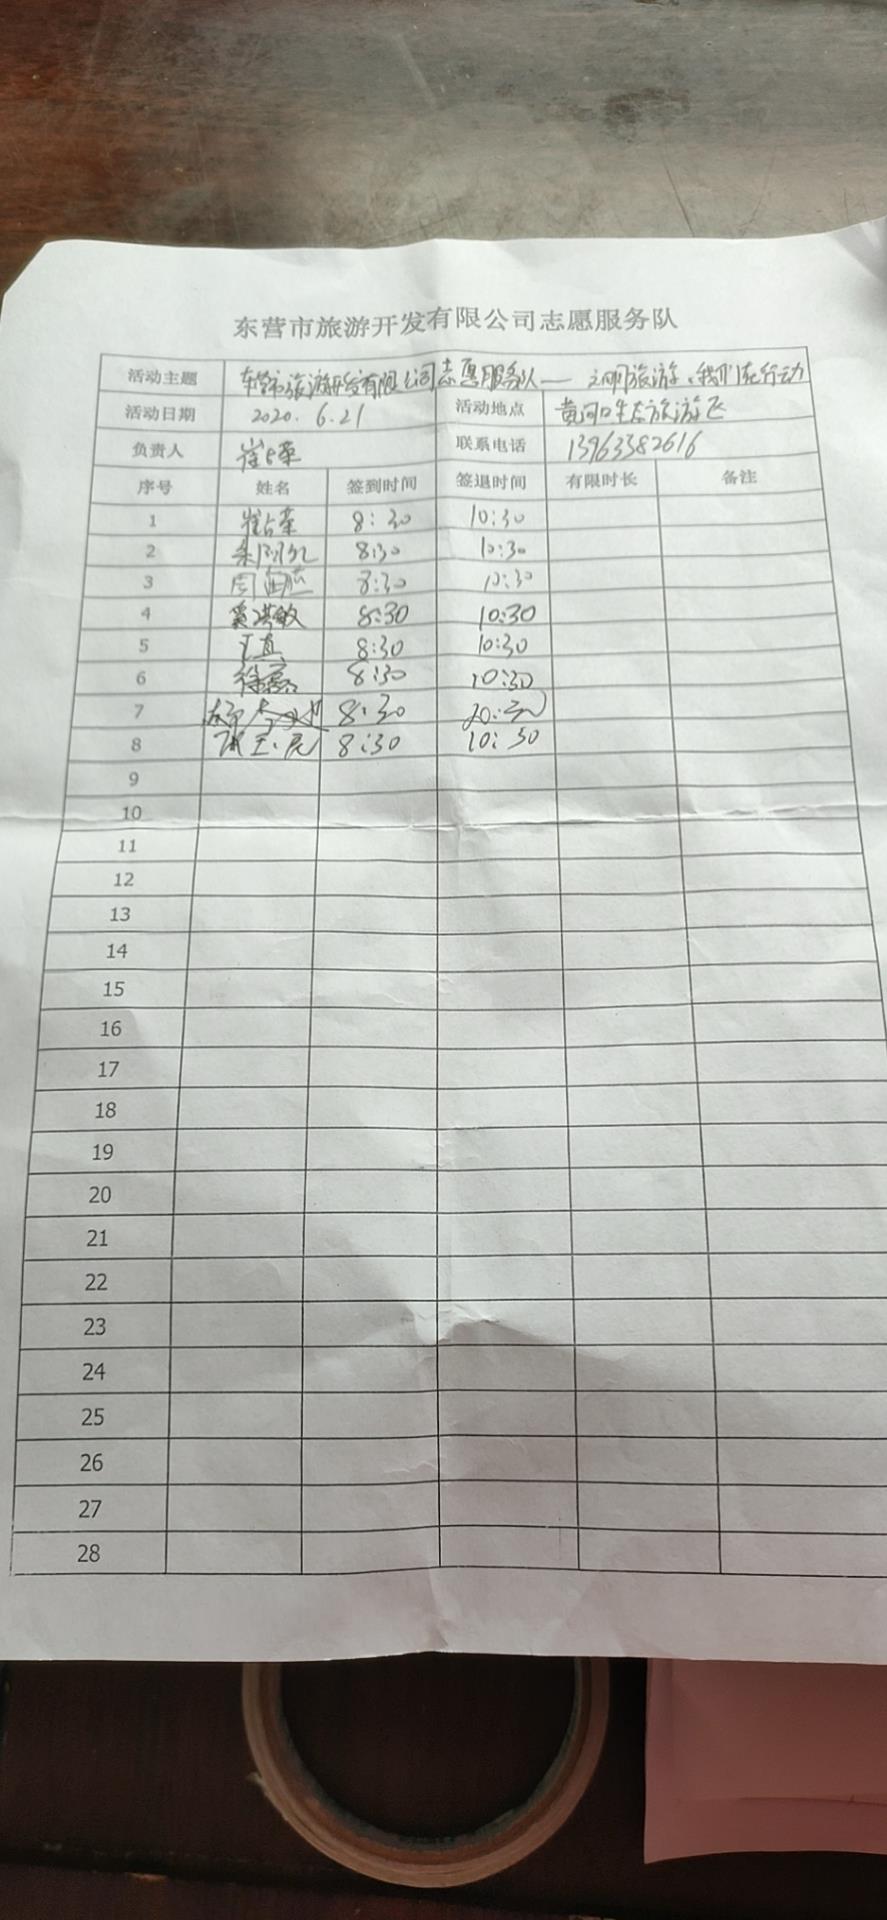 东营市旅游开发有限公司志愿服务队
活动主题 东营市旅游开发有限公司志愿服务队——文明旅游,我们在行动
活动日期 2020.6.21 活动地点 黄河口生态旅游区
负责人 崔占荣 联系电话 13963382616
序号 姓名 签到时间 签退时间 有限时长 备注
1 崔占荣 8:30 10:30
2 8:30 10:30
3 8:30 10:30
4 奚洪敏 8:30 10:30
5 王真 8:30 10:30
6 8:30 10:30
7 8:30
8 8:30 10:30
9
10
11
12
13
14
15
16
17
18
19
20
21
22
23
24
25
26
27
28